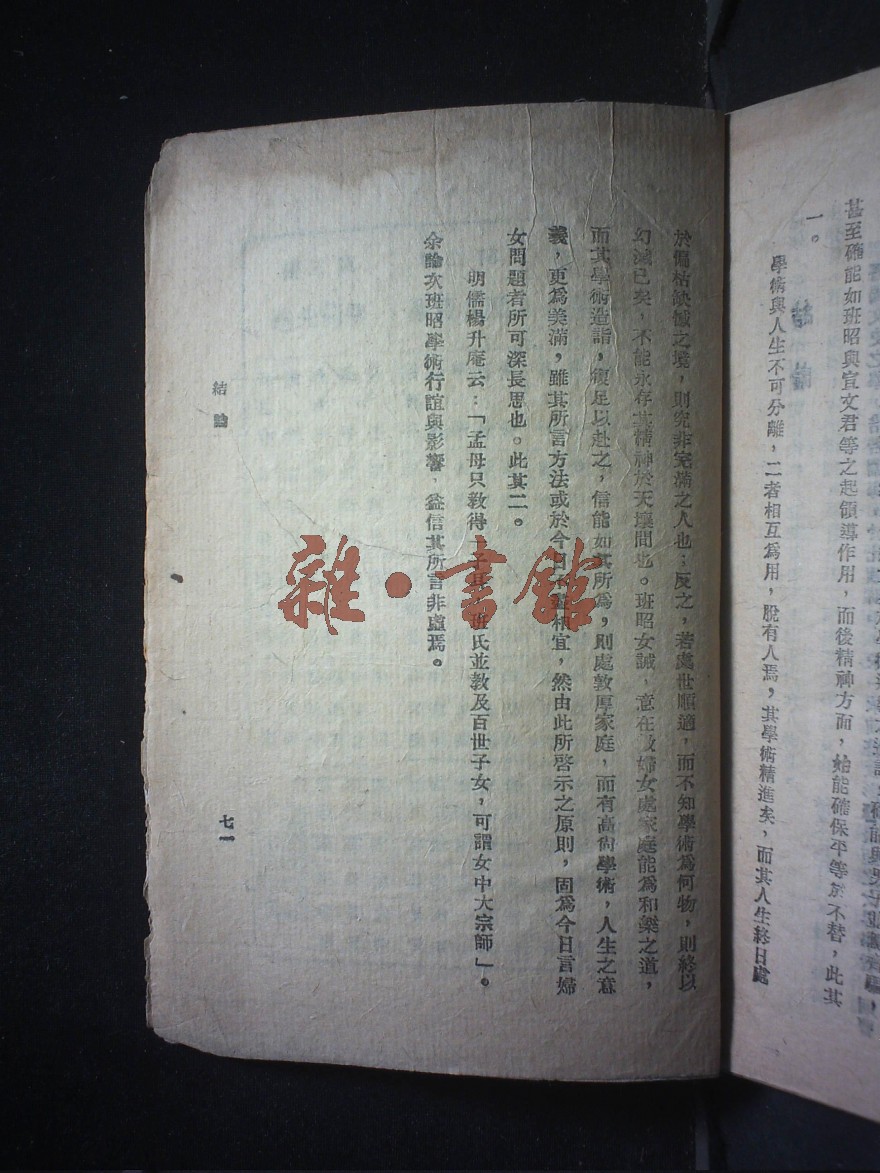 甚至確能如班昭與宣文君等之起領導作用，而後精神方面，始能確保平等於不替，此其
一。
學術與人生不可分離，二者相互爲用，脫有人焉，其學術精進矣，而其人生終日處
於偏枯缺憾之境，則究非完滿之人也；反之，若處世順適，而不知學術爲何物，則終以
幻滅已矣，不能永存其精神於天壤間也。班昭女誡，意在教婦女處家庭能爲和樂之道，
而其學術造詣，復足以赴之，信能如其所爲，則處敦厚家庭，而有高尚學術，人生之意
義，更爲美滿，雖其所言方法或於今日不盡相宜，然由此所啓示之原則，固爲今日言婦
女問題者所可深長思也。此其二。
明儒楊升庵云：「孟母只教得一子，班氏並教及百世子女，可謂女中大宗師」。
余論次班昭學術行誼與影響，益信其所言非虛焉。
結論
七一
雜·書館